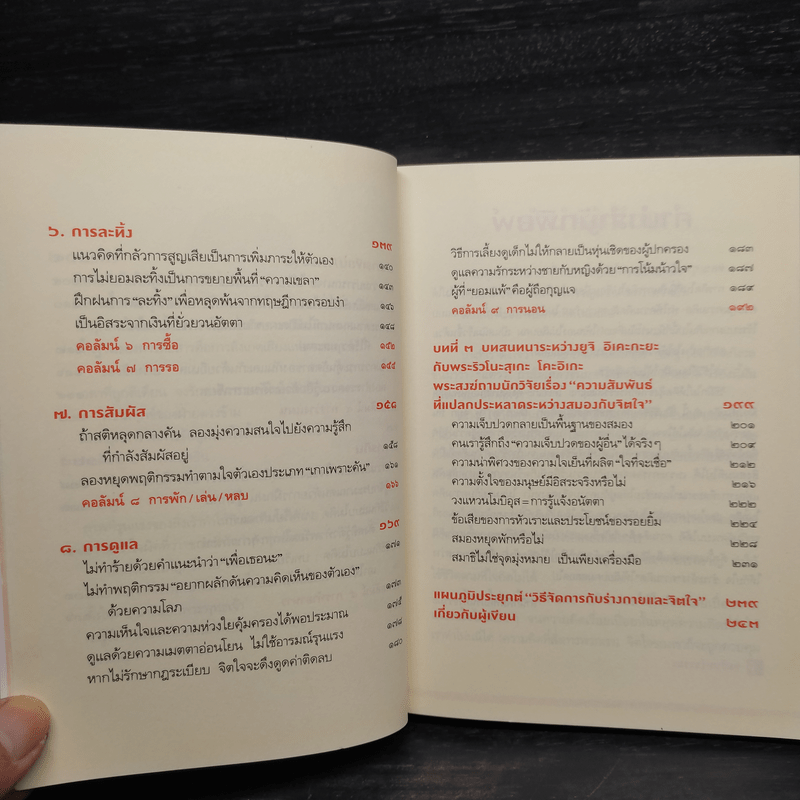 ๖. การละทิ้ง ๑๓๙
แนวคิดที่กลัวการสูญเสียเป็นการเพิ่มภาระให้ตัวเอง ๑๔๐
การไม่ยอมละทิ้งเป็นการขยายพื้นที่ “ความเขลา” ๑๔๓
ฝึกฝนการ “ละทิ้ง” เพื่อหลุดพ้นจากทฤษฎีการครอบงำ ๑๔๖
เป็นอิสระจากเงินที่ยั่วยวนอัตตา ๑๔๘
คอลัมน์ ๖ การซื้อ ๑๕๒
คอลัมน์ ๗ การรอ ๑๕๕
๗. การสัมผัส ๑๕๗
ถ้าสติหลุดกลางคัน ลองมุ่งความสนใจไปยังความรู้สึก
ที่กำลังสัมผัสอยู่ ๑๕๘
ลองหยุดพฤติกรรมทำตามใจตัวเองประเภท “เกาเพราะคัน” ๑๖๑
คอลัมน์ ๘ การพัก/เล่น/หลบ ๑๖๖
๘. การดูแล ๑๖๙
ไม่ทำร้ายด้วยคำแนะนำว่า “เพื่อเธอนะ” ๑๗๑
ไม่ทำพฤติกรรม “อยากผลักดันความคิดเห็นของตัวเอง”
ด้วยความโลภ ๑๗๓
ความเห็นใจและความห่วงใยคุ้มครองได้พอประมาณ ๑๗๕
ดูแลด้วยความเมตตาอ่อนโยน ไม่ใช้อารมณ์รุนแรง ๑๗๘
หากไม่รักษากฎระเบียบ จิตใจจะดึงดูดค่าติดลบ ๑๘๐
วิธีการเลี้ยงดูเด็กไม่ให้กลายเป็นหุ่นเชิดของผู้ปกครอง ๑๘๓
ดูแลความรักระหว่างชายกับหญิงด้วย “การโน้มน้าวใจ” ๑๘๗
ผู้ที่ “ยอมแพ้” คือผู้ถือกุญแจ ๑๘๙
คอลัมน์ ๙ การนอน ๑๙๒
บทที่ ๓ บทสนทนาระหว่างยูจิ อิเคะกะยะ
กับพระริวโนะสุเกะ โคะอิเกะ
พระสงฆ์ถามนักวิจัยเรื่อง “ความสัมพันธ์
ที่แปลกประหลาดระหว่างสมองกับจิตใจ” ๑๙๙
ความเจ็บปวดกลายเป็นพื้นฐานของสมอง ๒๐๑
คนเรารู้สึกถึง “ความเจ็บปวดของผู้อื่น” ได้จริงๆ ๒๐๔
ความน่าพิศวงของความใจเย็นที่ผลิต “ใจที่จะเชื่อ” ๒๑๒
ความตั้งใจของมนุษย์มีอิสระจริงหรือไม่ ๒๑๖
วงแหวนโมบิอุส = การรู้แจ้งอนัตตา ๒๒๒
ข้อเสียของการหัวเราะและประโยชน์ของรอยยิ้ม ๒๒๔
สมองหยุดพักหรือไม่ ๒๒๘
สมาธิไม่ใช่จุดมุ่งหมาย เป็นเพียงเครื่องมือ ๒๓๑
แผนภูมิประยุกต์ “วิธีจัดการกับร่างกายและจิตใจ” ๒๓๙
เกี่ยวกับผู้เขียน ๒๔๓